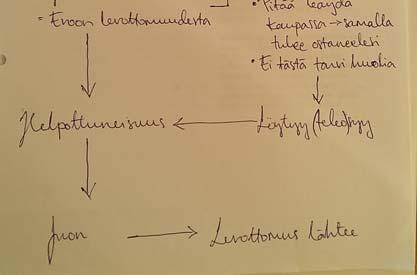 - Eroon levottomuudesta
• Pitää käydä
kaupassa → samalla
tulee ostaneeksi
• Ei tästä tarvi huolia
Helpottuneisuus ← Löytyy (teko)syy
Juon → Levottomuus lähtee